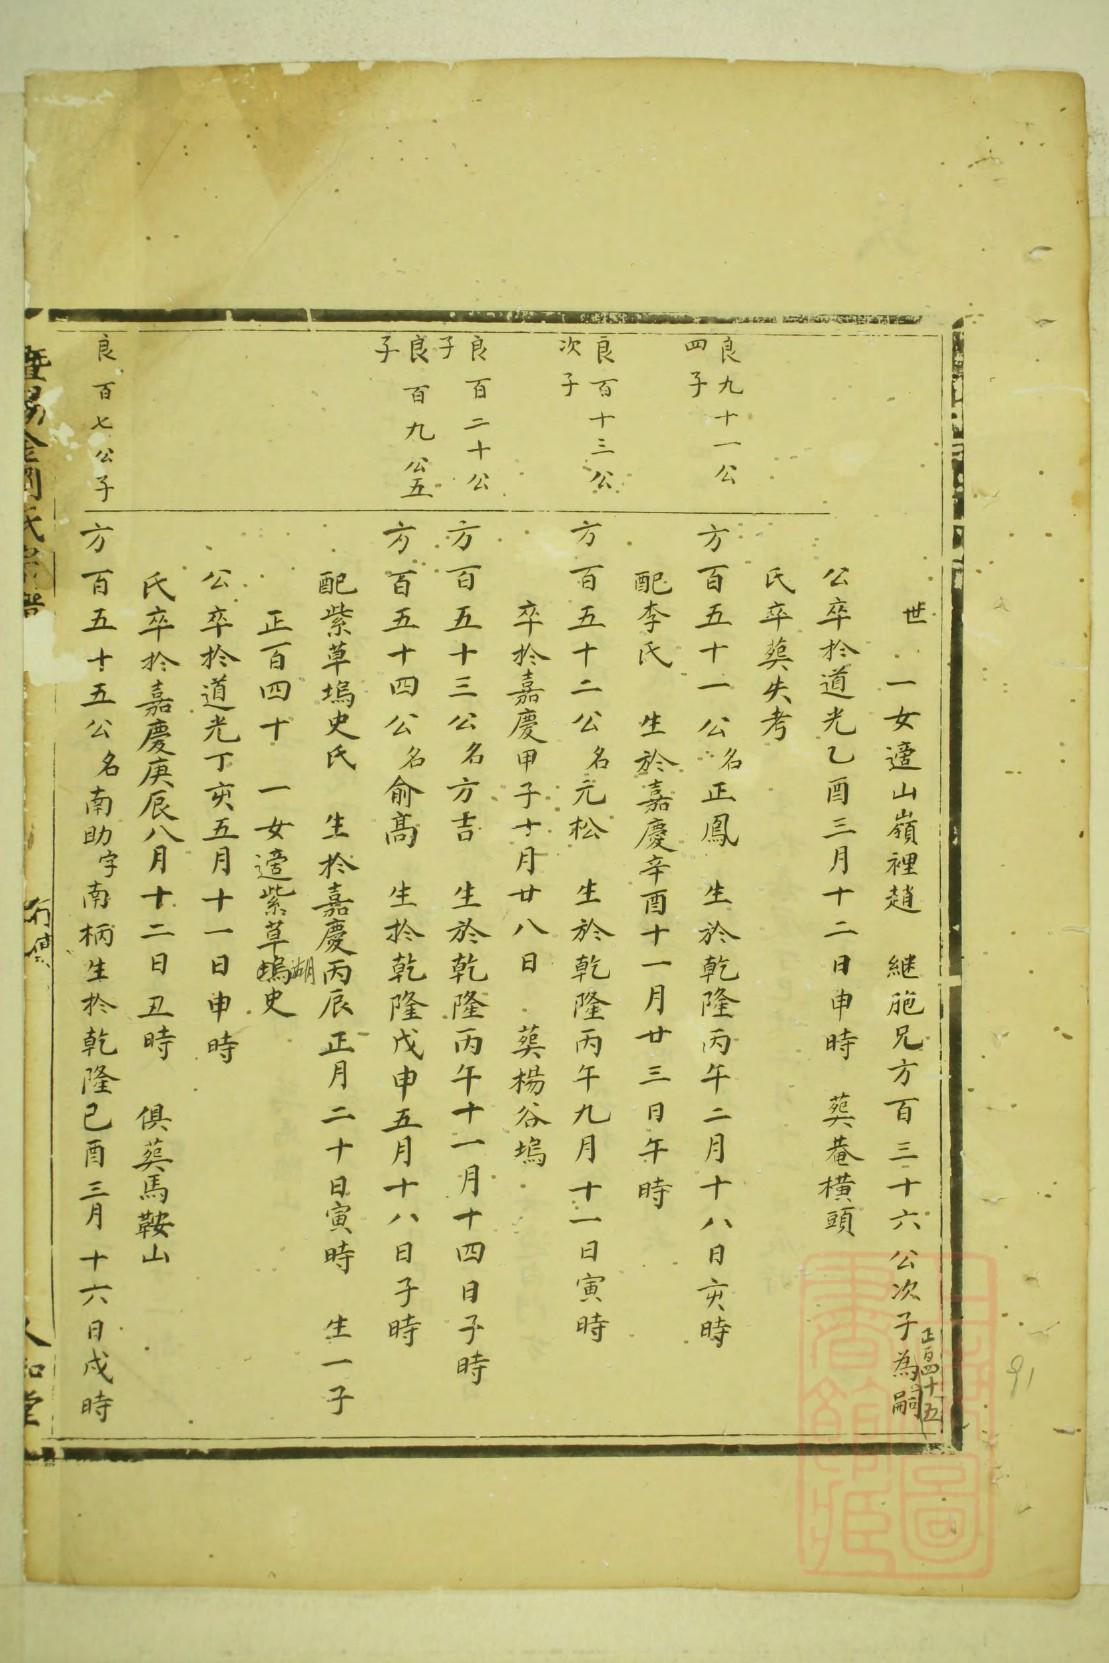 世 一女適山嶺裡趙 継胞兄方百三十六公次子為嗣
正百四十五
公卒扵道光乙酉三月十二日申時 𦵏菴橫頭
氏卒𦵏失考
良九十一公四子
方百五十一公名正鳳 生於乾隆丙午二月十八日亥時
配李氏 生於嘉慶辛酉十一月廿三日午時
良百十三公次子
方百五十二公名元松 生於乾隆丙午九月十一日寅時
卒扵嘉慶甲子十月廿八日 𦵏楊谷塢
良百二十公子
方百五十三公名方吉 生於乾隆丙午十一月十四日子時
良百九公五子
方百五十四公名俞髙 生扵乾隆戊申五月十八日子時
配紫草塢史氏 生扵嘉慶丙辰正月二十日寅時 生一子
正百四十 一女適紫草塢史
湖
公卒扵道光丁亥五月十一日申時
氏卒扵嘉慶庚辰八月十二日丑時 俱𦵏馬鞍山
良百七公子
方百五十五公名南助字南柄生扵乾隆己酉三月十六日戌時
暨昜金澗氏宗譜
行傳
人和堂
91